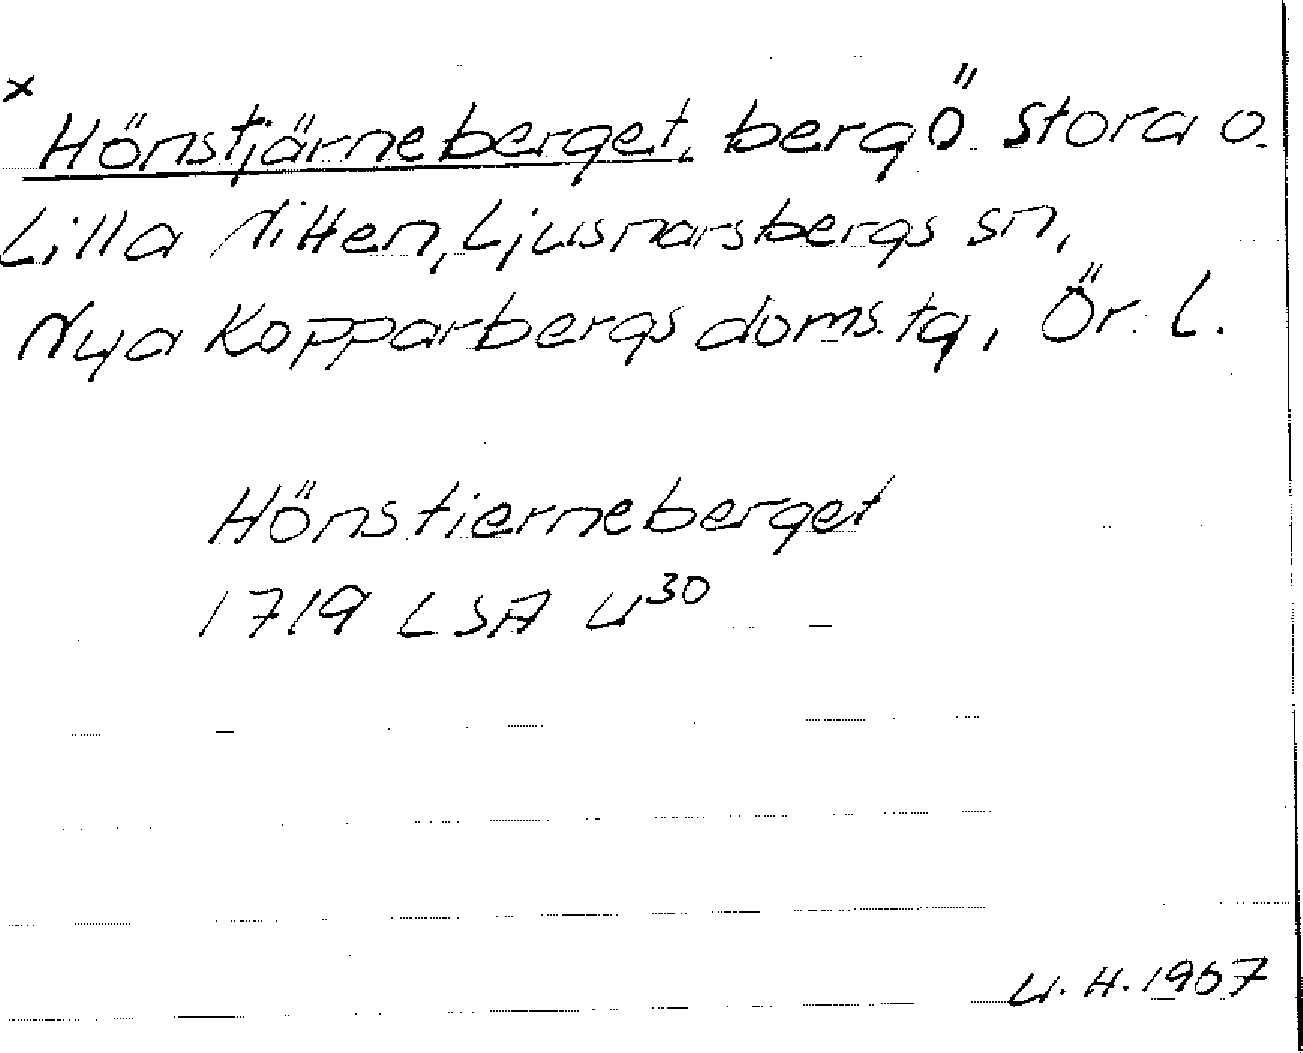 x Hönstjärneberget, berg Ö Stora o.
Lilla Nitten, Ljusnarsbergs sn,
Nya Kopparbergs doms. tg, Ör. l.
Hönstierneberget
1719 LSA U30
U. H. 1967